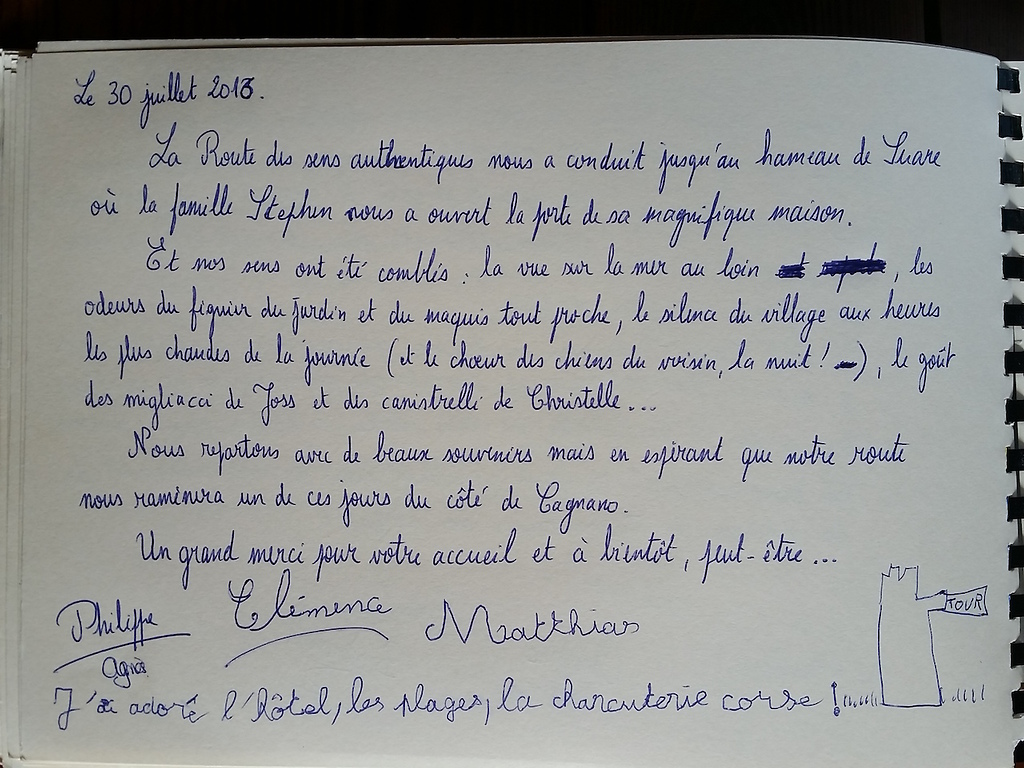 Le 30 juillet 2013.
La Route des sens authentiques nous a conduit jusqu'au hameau de Suare
où la famille Stephen nous a ouvert la porte de sa magnifique maison.
Et nos sens ont été comblés : la vue sur la mer au loin , les
odeurs du figuier du jardin et du maquis tout proche, le silence du village aux heures
les plus chaudes de la journée (et le chœur des chiens du voisin, la nuit ! ), le goût
des migliacci de Joss et des canistrelli de Christelle...
Nous repartons avec de beaux souvenirs mais en espérant que notre route
nous ramènera un de ces jours du côté de Cagnano.
Un grand merci pour votre accueil et à bientôt, peut-être...
Philippe Clémence Matthias
Agnès
TOUR
J'ai adoré l'hôtel, les plages, la charcuterie corse !